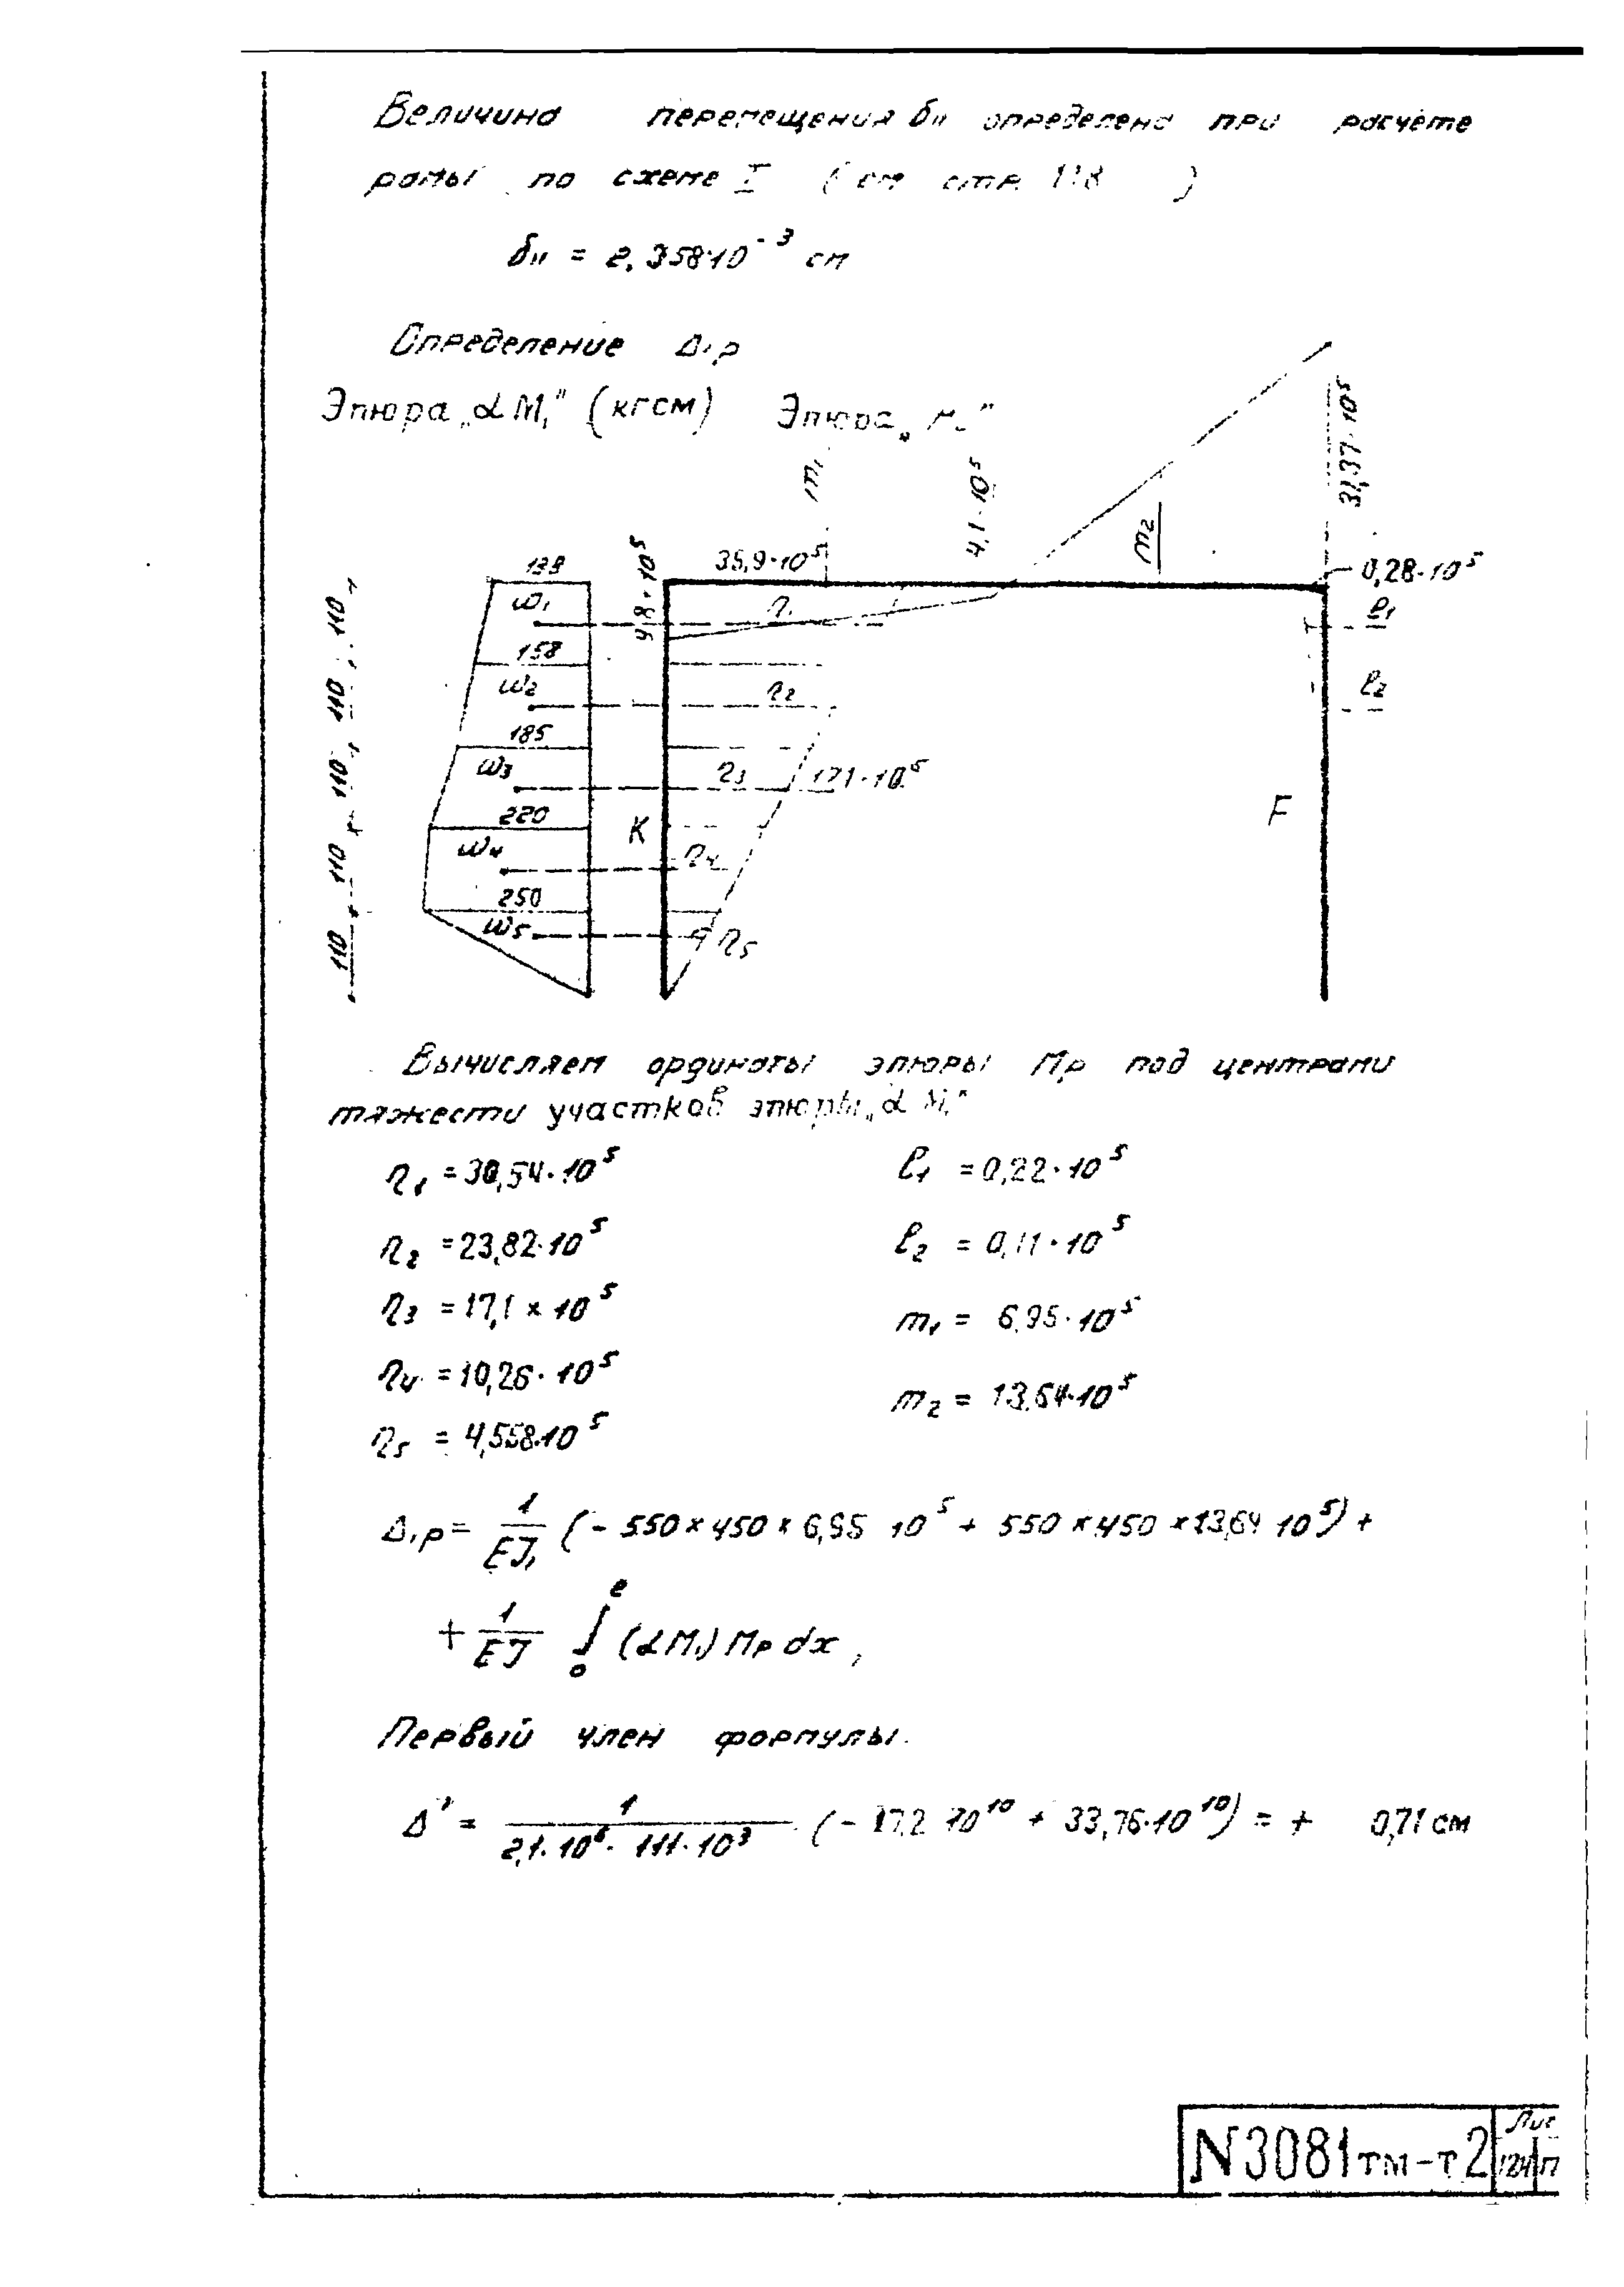 Величина перемещения δ₁₁ определена при расчете
рамы по схеме I (см стр. 118 )
δ₁₁ = 2,358·10⁻³ см
Определение Δ₁р
Эпюра „αM₁" (кгсм) Эпюра „
m₁
4,1·10⁵
m₂
31,37·10⁵
35,9·10⁵
9,8·10⁵
0,28·10⁵
ω₁
η₁
ℓ₁
158
ω₂
η₂
ℓ₂
185
ω₃
η₃
17,1·10⁵
220
ω₄
K
η₄
F
250
ω₅
η₅
110 110 110 110 110
Вычисляем ординаты эпюры Мр под центрами
тяжести участков эпюры „α M₁"
η₁ = 30,54·10⁵ ℓ₁ = 0,22·10⁵
η₂ = 23,82·10⁵ ℓ₂ = 0,11·10⁵
η₃ = 17,1 × 10⁵ m₁ = 6,95·10⁵
η₄ = 10,26·10⁵ m₂ = 13,64·10⁵
η₅ = 4,558·10⁵
Δ₁р = 1/EJ₁ (- 550 × 450 × 6,95 10⁵ + 550 × 450 × 13,64 10⁵) +
+ 1/EJ ∫₀ᵉ (αM₁) Mр dx ,
Первый член формулы.
Δ' = 1/2,1·10⁶·111·10³ (- 17,2 10¹⁰ + 33,76·10¹⁰) = + 0,71 см
N3081тм-т2
Лис
124 П